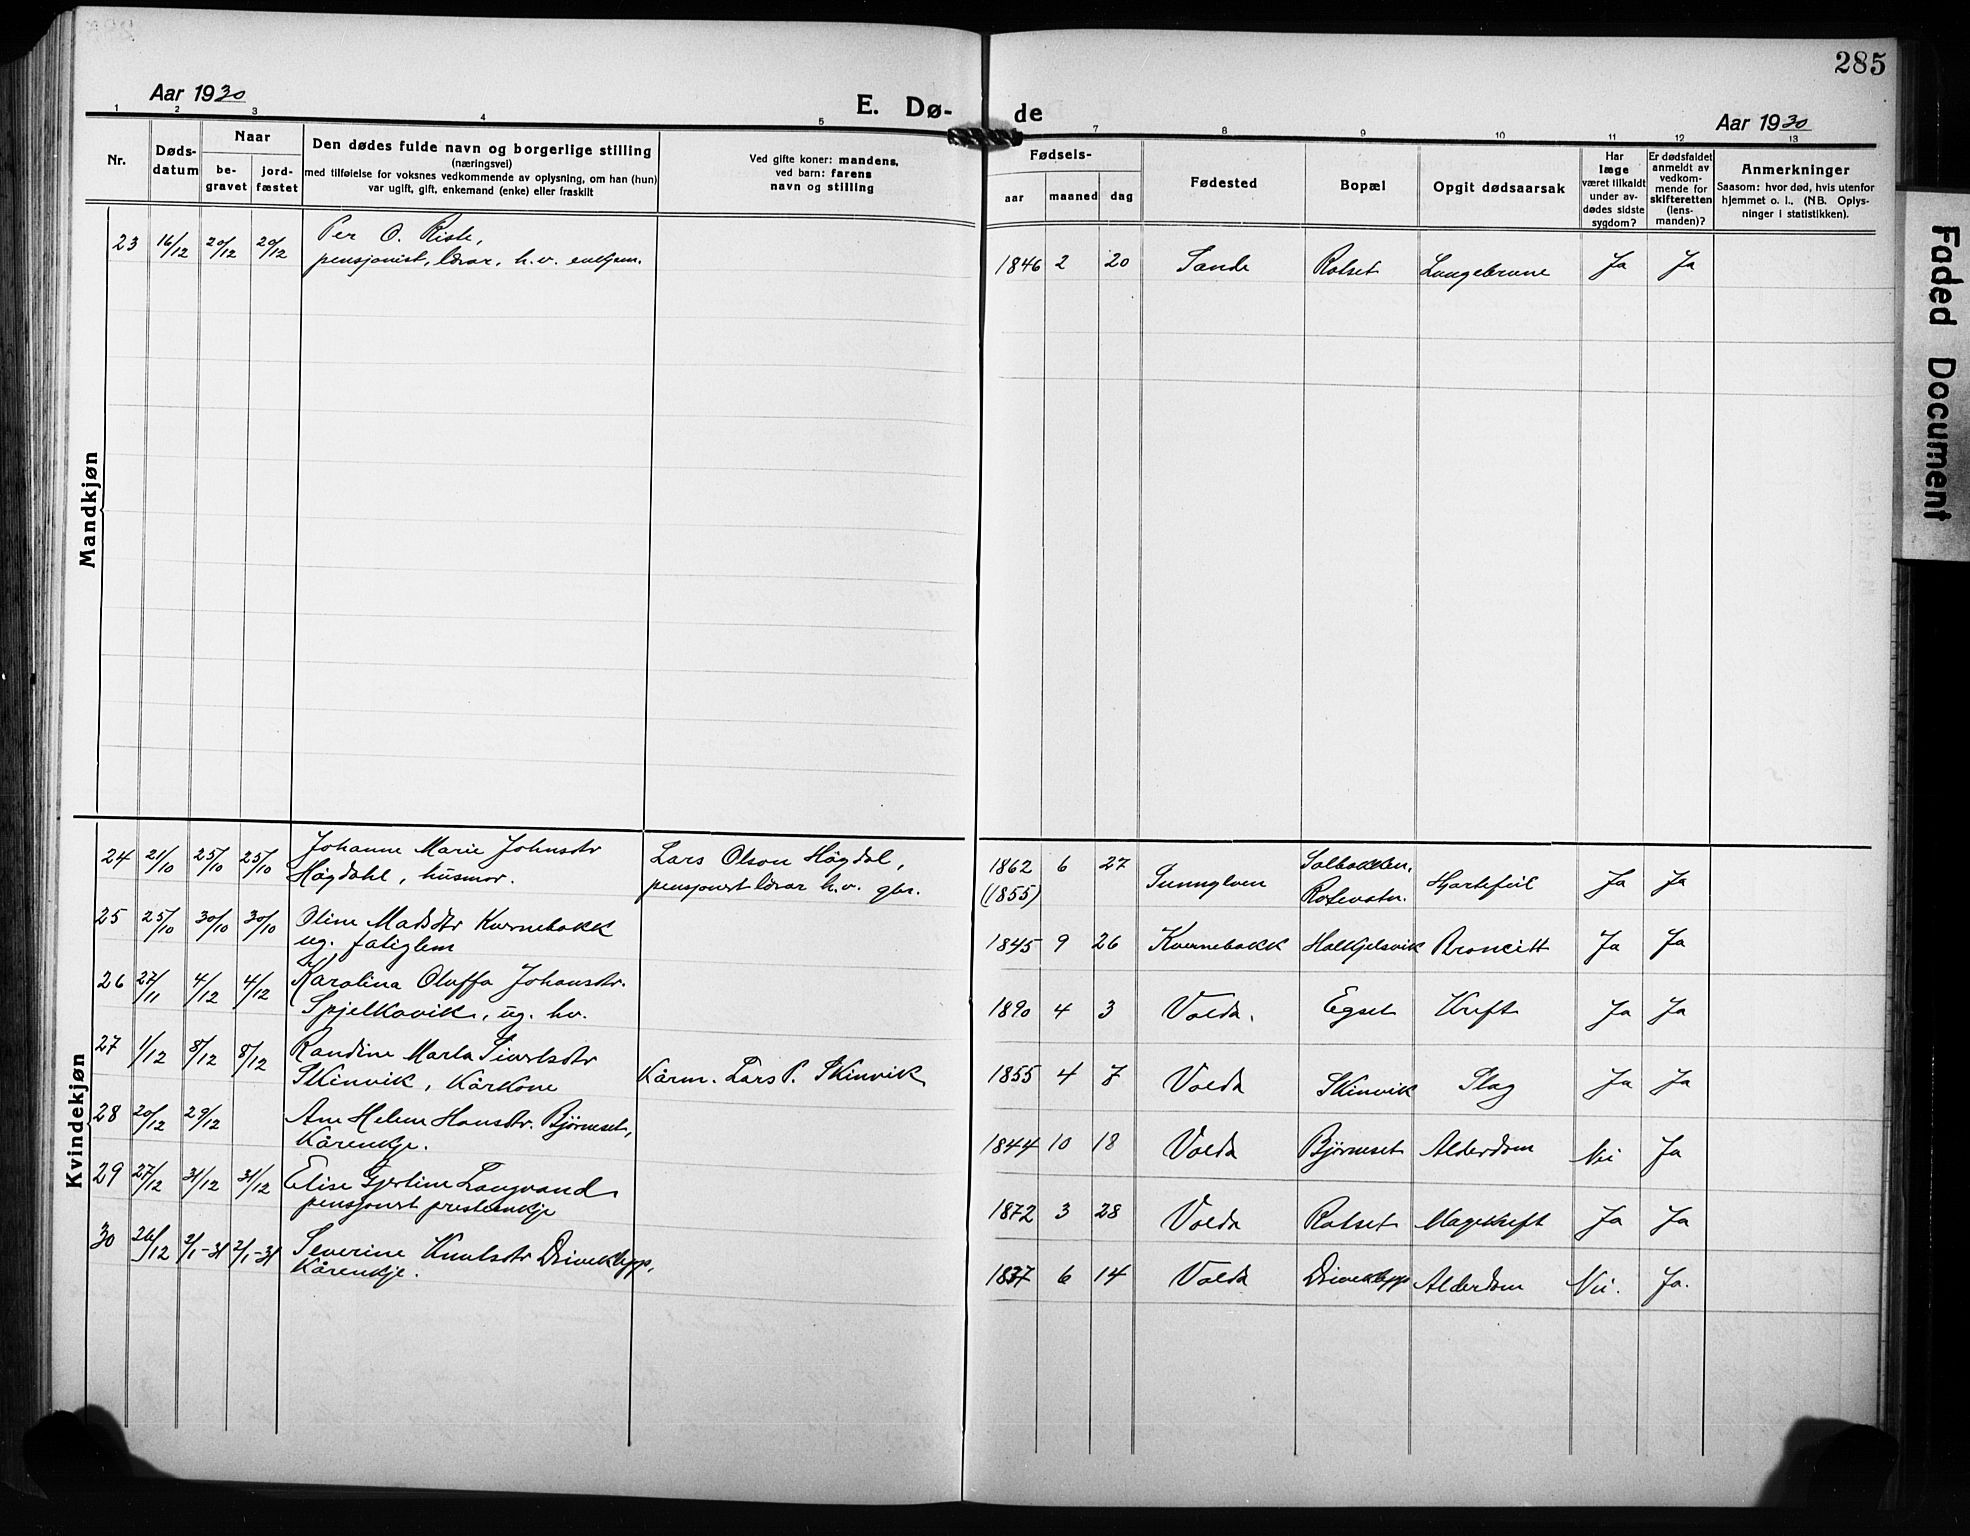 285
Aar 1930
E. Dø-
de
Aar 1930
1 2 3 4 5 7 8 9 10 11 12 13
Nr.
Døds-
datum
Naar
be-
gravet
jord-
fæstet
Den dødes fulde navn og borgerlige stilling
(næringsvei)
med tilføielse for voksnes vedkommende av oplysning, om han (hun)
var ugift, gift, enkemand (enke) eller fraskilt
Ved gifte koner: mandens,
ved barn: farens
navn og stilling
Fødsels-
aar maaned dag
Fødested
Bopæl
Opgit dødsaarsak
Har
læge
været tilkaldt
under av-
dødes sidste
sygdom?
Er dødsfaldet
anmeldt av
vedkom-
mende for
skifteretten
(lens-
manden)?
Anmerkninger
Saasom: hvor død, hvis utenfor
hjemmet o. l., (NB. Oplys-
ninger i statistikken).
Mandkjøn
23 16/12 20/12 20/12 Per O. Riste,
pensjonist, lærar, h.v. enkjem. 1846 2 20 Sande Rotset Lungebrune Ja Ja
Kvindekjøn
24 21/10 25/10 25/10 Johanne Marie Johnsdtr
Høgdahl, husmor.
Lars Olson Høgdal,
pensjonert lærar h.v. gbr.
1862 6 27
(1855)
Sunnylven
Solbakken,
Rotevatn.
Hjartefeil Ja Ja
25 25/10 30/10 30/10 Oline Madsdtr Kvernebakk
ug. fatiglem
1845 9 26 Kvernebakk Halkjelsvik Broncitt Ja Ja
26 27/11 4/12 4/12 Karolina Oluffa Johansdtr.
Spjelkavik, ug. hv.
1890 4 3 Volda. Egset Kreft Ja Ja
27 1/12 8/12 8/12 Randine Marta Sivertsdtr
Skinvik, Kårkone
Kårm. Lars P. Skinvik
1855 4 7 Volda Skinvik Slag Ja Ja
28 20/12 29/12 Ane Helene Hansdtr. Bjørneset,
Kårenkje.
1844 10 18 Volda Bjørneset Alderdom Nei Ja
29 27/12 31/12 31/12 Elise Gjertine Langvand
pensjonert presteenkje
1872 3 28 Volda Rotset Magekreft Ja Ja
30 26/12 2/1-31 2/1-31 Severine Knutsdtr Driveklepp,
Kårenkje.
1837 6 14 Volda Driveklepp Alderdom Nei. Ja.
Faded Document